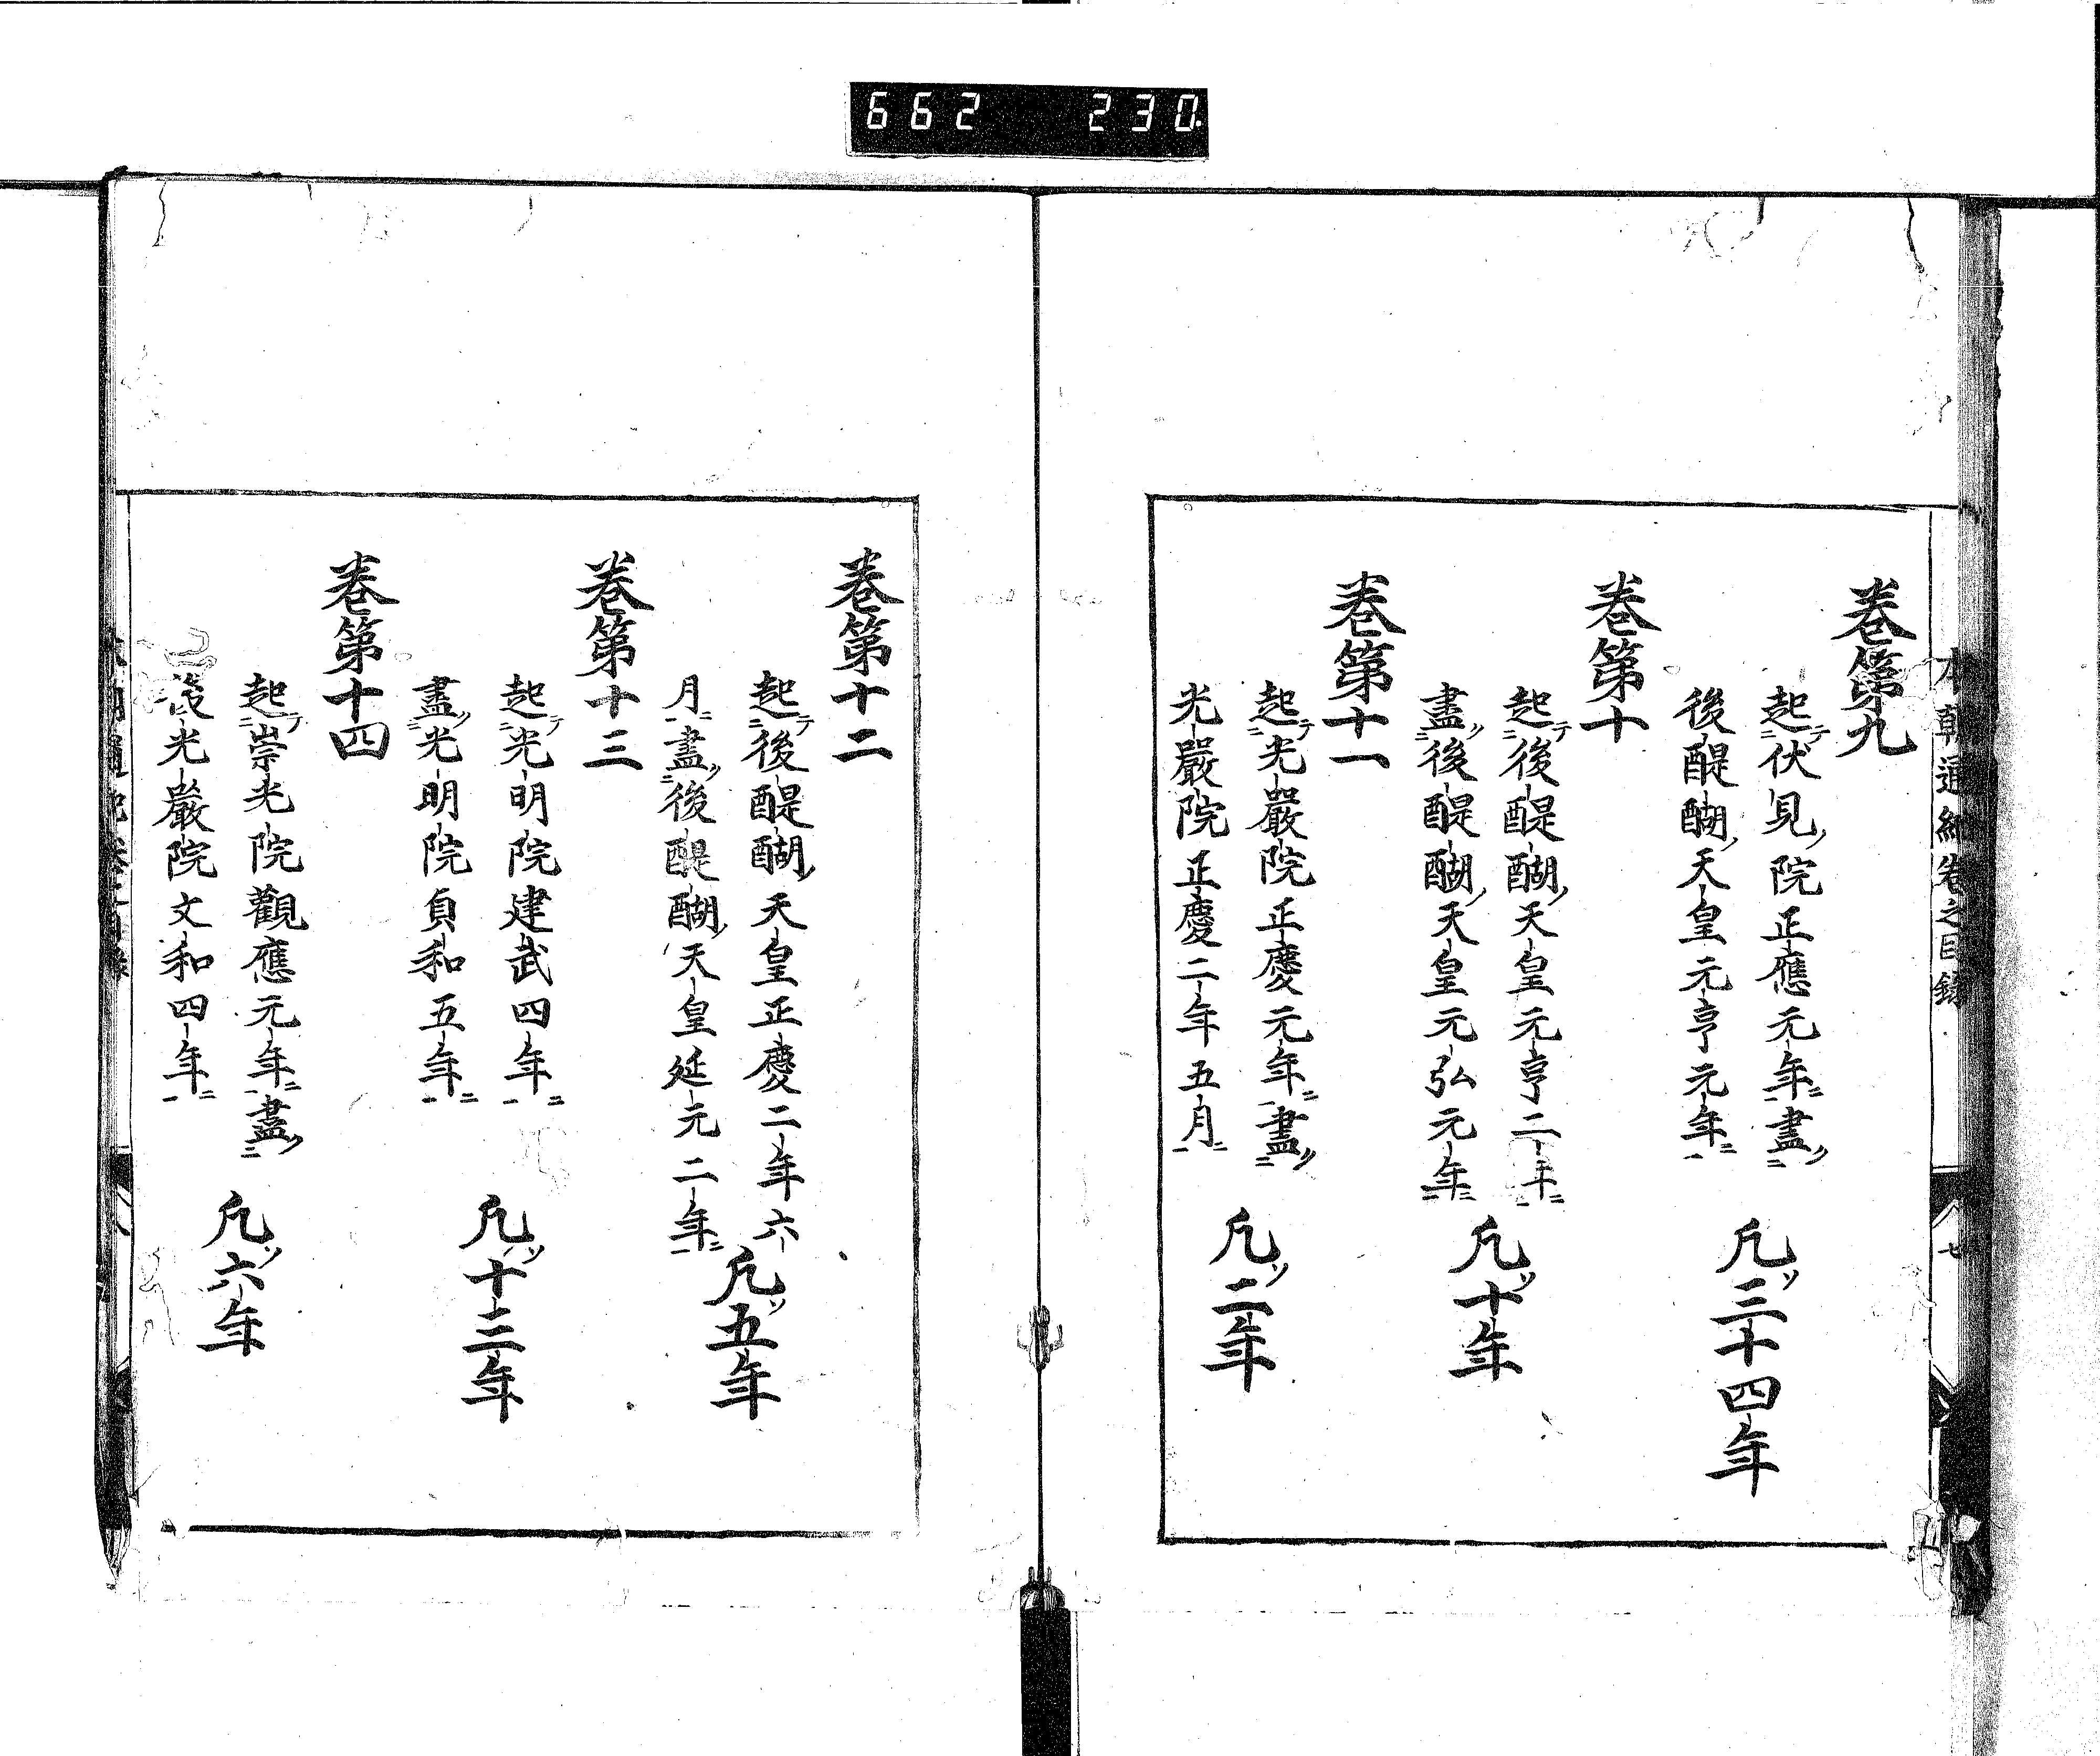 662 230.
本朝通紀卷之目録 七
卷第九
起伏見院正應元年盡
後醍醐天皇元亨元年
凢三十四年
卷第十
起後醍醐天皇元亨二年
盡後醍醐天皇元弘元年
凢十年
卷第十一
起光嚴院正慶元年盡
光嚴院正慶二年五月
凢二年
卷第十二
起後醍醐天皇正慶二年六
月盡後醍醐天皇延元二年
凢五年
卷第十三
起光明院建武四年
盡光明院貞和五年
凢十三年
卷第十四
起崇光院觀應元年盡
後光嚴院文和四年
凢六年